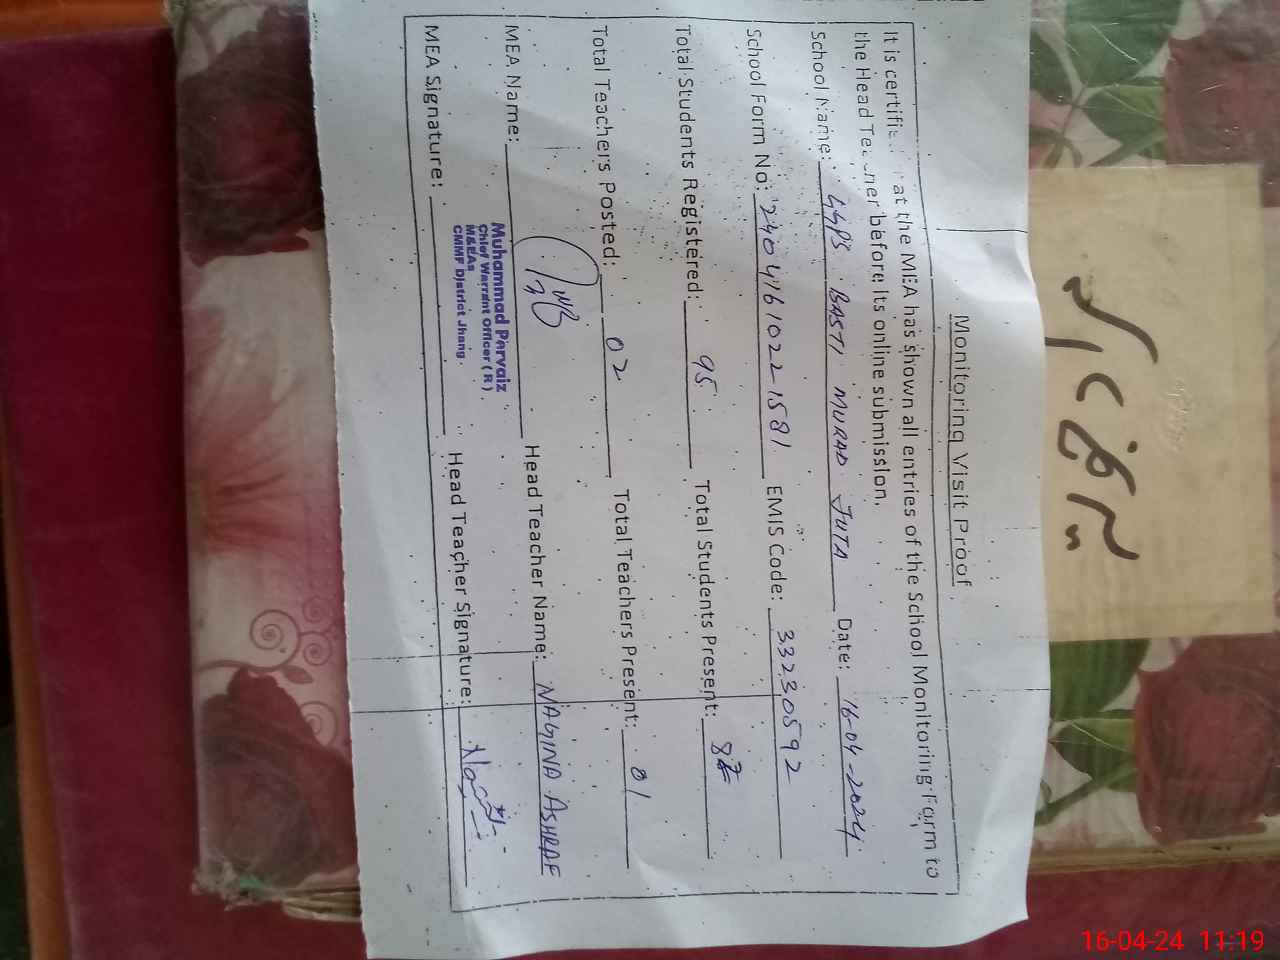 Monitoring Visit Proof
It is certifi at the MEA has shown all entries of the School Monitoring Form to
the Head Teacher before its online submission.
School Name: GGPS BASTI MURAD JUTA Date: 16-04-2024
School Form No: 24041610221581 EMIS Code: 33230592
Total Students Registered: 95 Total Students Present:
Total Teachers Posted: 02 Total Teachers Present: 01
MEA Name: Head Teacher Name: NAGINA ASHRAF
Muhammad Pervaiz
Chief Warrant Officer (R)
M&EAs
CMMF District Jhang.
MEA Signature: Head Teacher Signature:
16-04-24 11:19